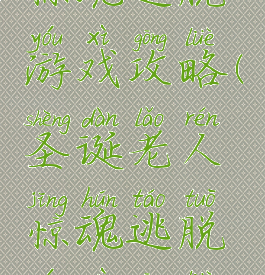 yóu xì gōng lüè
游戏攻略(
shèng dàn lǎo rén
圣诞老人
jīng hún táo tuō
惊魂逃脱